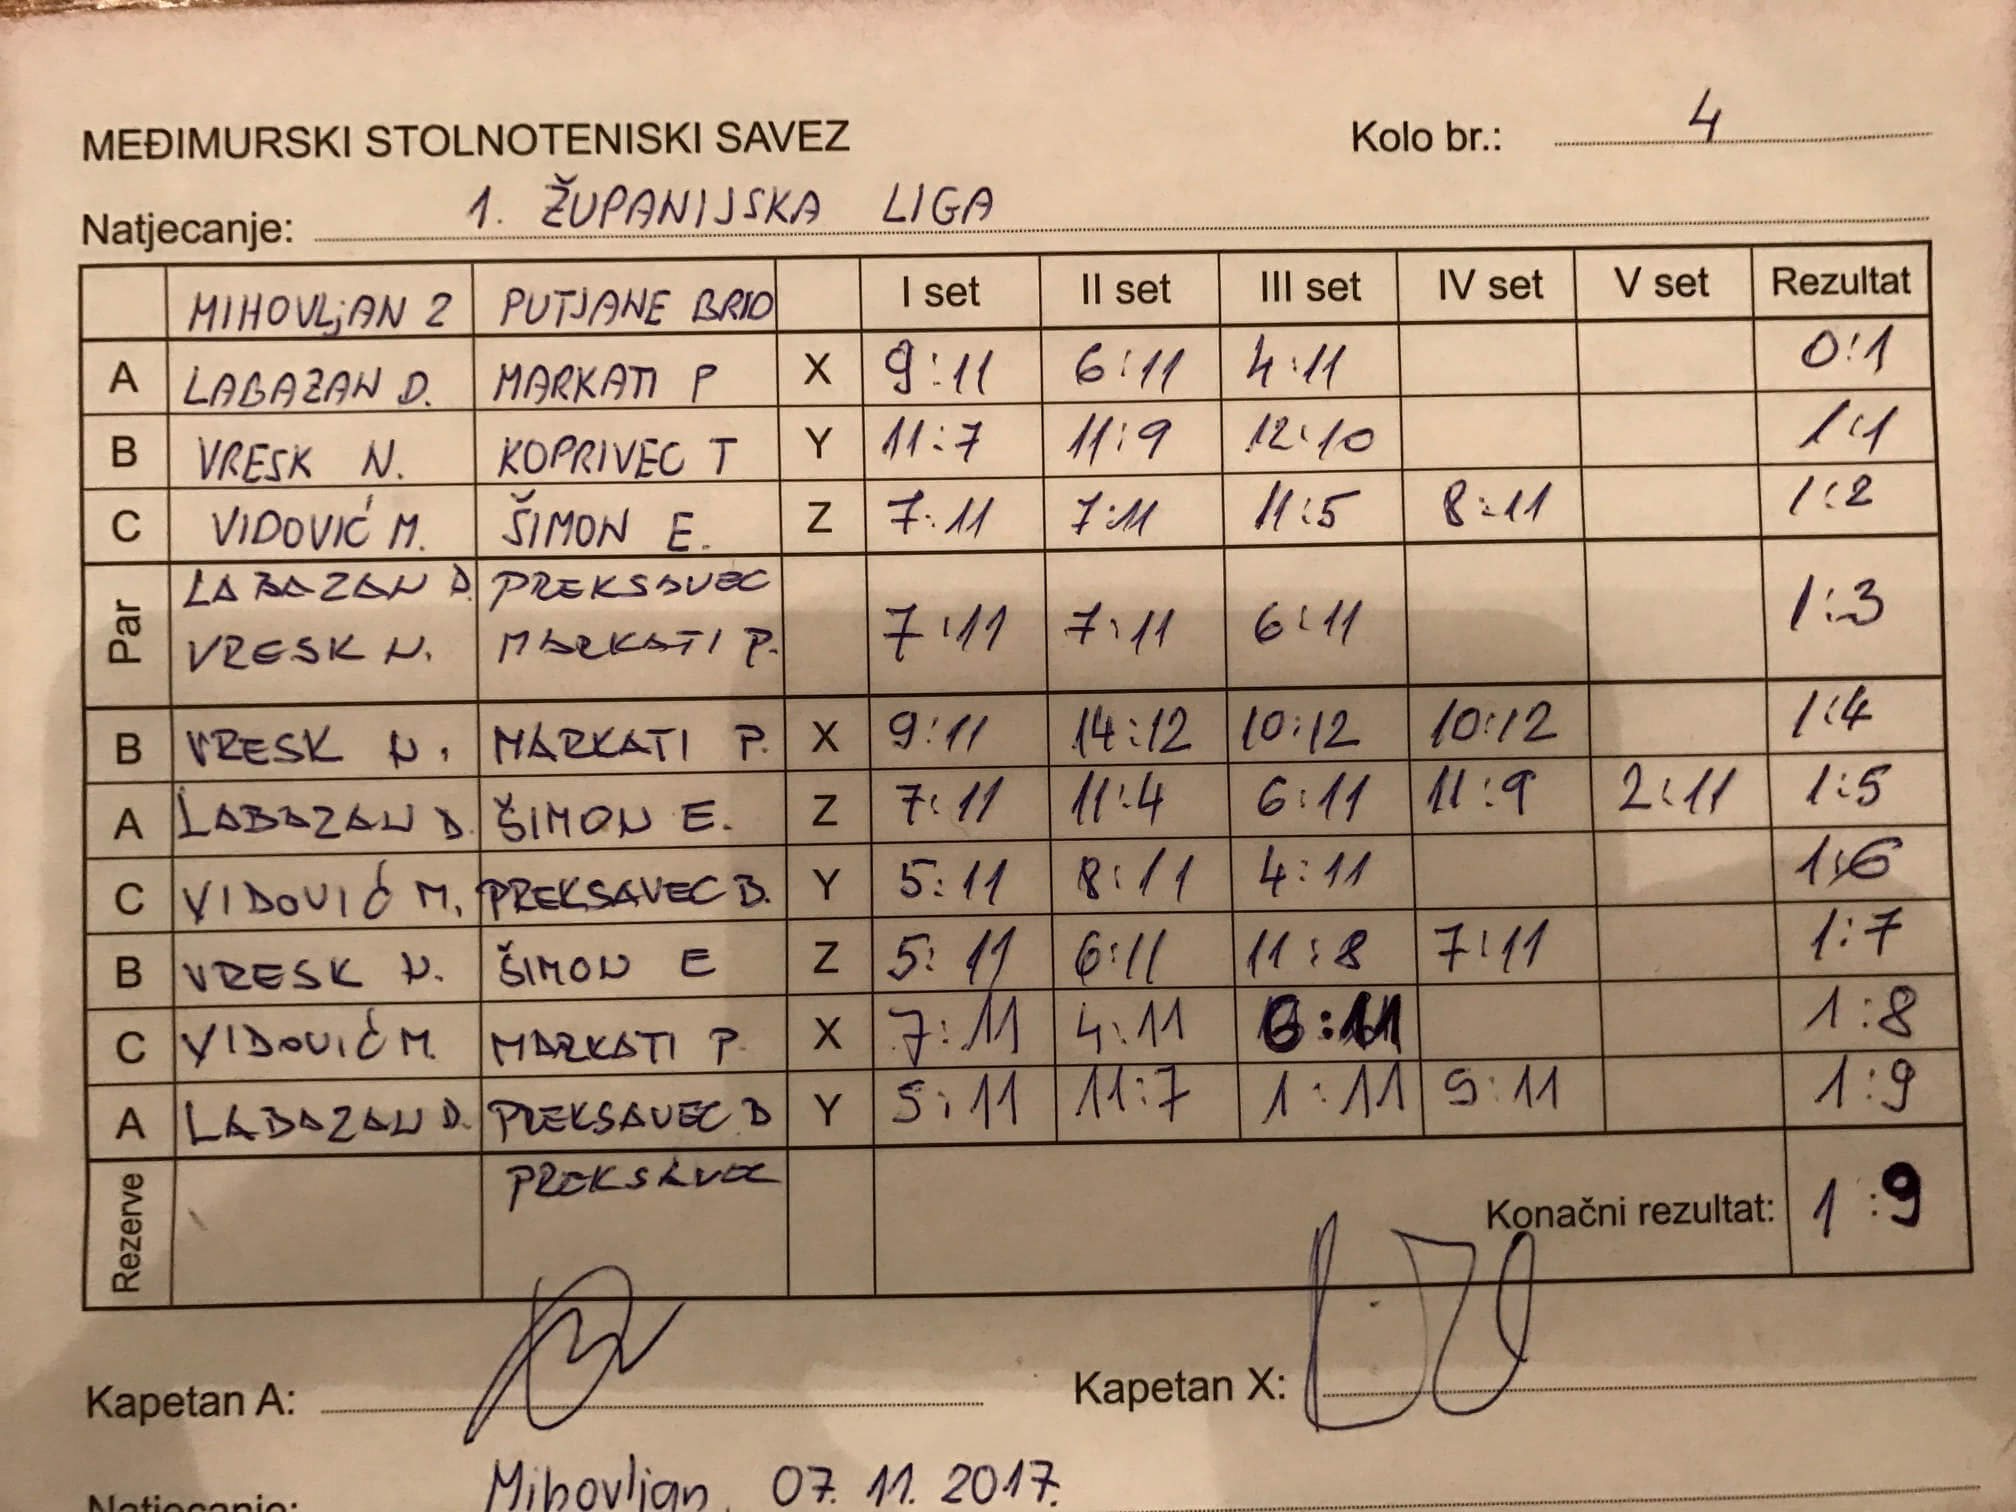 MEĐIMURSKI STOLNOTENISKI SAVEZ Kolo br.: 4
Natjecanje: 1. ŽUPANIJSKA LIGA
MIHOVLjAN 2 PUTJANE BRID I set II set III set IV set V set Rezultat
A LABAZAN D. MARKATI P X 9:11 6:11 4:11 0:1
B VRESK N. KOPRIVEC T Y 11:7 11:9 12:10 1:1
C VIDOVIĆ M. ŠIMON E. Z 7:11 7:11 11:5 8:11 1:2
Par LABAZAN D. PREKSAVEC 7:11 7:11 6:11 1:3
VRESK N. MARKATI P.
B VRESK N. MARKATI P. X 9:11 14:12 10:12 10:12 1:4
A LABAZAN D. ŠIMON E. Z 7:11 11:4 6:11 11:9 2:11 1:5
C VIDOVIĆ M. PREKSAVEC B. Y 5:11 8:11 4:11 1:6
B VRESK N. ŠIMON E Z 5:11 6:11 11:8 7:11 1:7
C VIDOVIĆ M. MARKATI P. X 7:11 4:11 6:11 1:8
A LABAZAN D. PREKSAVEC B Y 5:11 11:7 1:11 9:11 1:9
Rezerve PREKSAVEC Konačni rezultat: 1:9
Kapetan A: Kapetan X:
Natjecanje: Mihovljan, 07. 11. 2017.